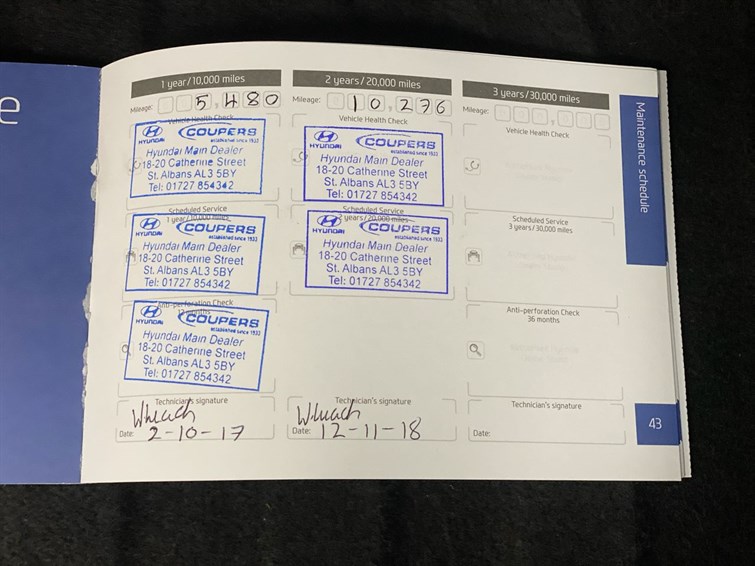 e
1 year/10,000 miles
Mileage: 5,480
Vehicle Health Check
HYUNDAI COUPERS
established since 1933
Hyundai Main Dealer
18-20 Catherine Street
St. Albans AL3 5BY
Tel: 01727 854342
Scheduled Service
1 year/10,000 miles
HYUNDAI COUPERS
established since 1933
Hyundai Main Dealer
18-20 Catherine Street
St. Albans AL3 5BY
Tel: 01727 854342
Anti-perforation Check
12 months
HYUNDAI COUPERS
established since 1933
Hyundai Main Dealer
18-20 Catherine Street
St. Albans AL3 5BY
Tel: 01727 854342
Technician's signature
Date: 2-10-17
2 years/20,000 miles
Mileage: 10,276
Vehicle Health Check
HYUNDAI COUPERS
established since 1933
Hyundai Main Dealer
18-20 Catherine Street
St. Albans AL3 5BY
Tel: 01727 854342
Scheduled Service
2 years/20,000 miles
HYUNDAI COUPERS
established since 1933
Hyundai Main Dealer
18-20 Catherine Street
St. Albans AL3 5BY
Tel: 01727 854342
Technician's signature
Date: 12-11-18
3 years/30,000 miles
Mileage:
Vehicle Health Check
Scheduled Service
3 years/30,000 miles
Anti-perforation Check
36 months
Technician's signature
Date:
Maintenance schedule
43